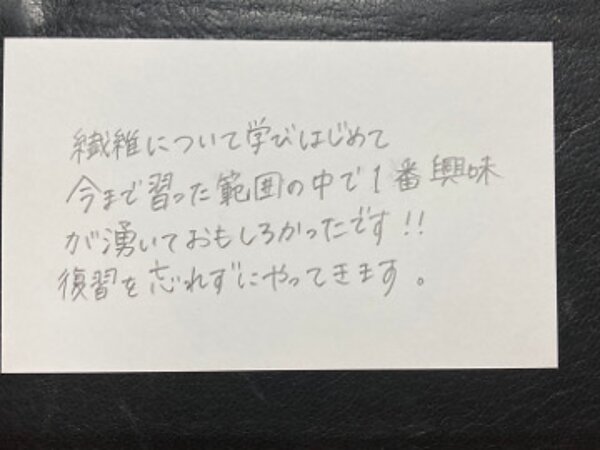 繊維について学びはじめて
今まで習った範囲の中で1番興味
が湧いておもしろかったです!!
復習を忘れずにやってきます。